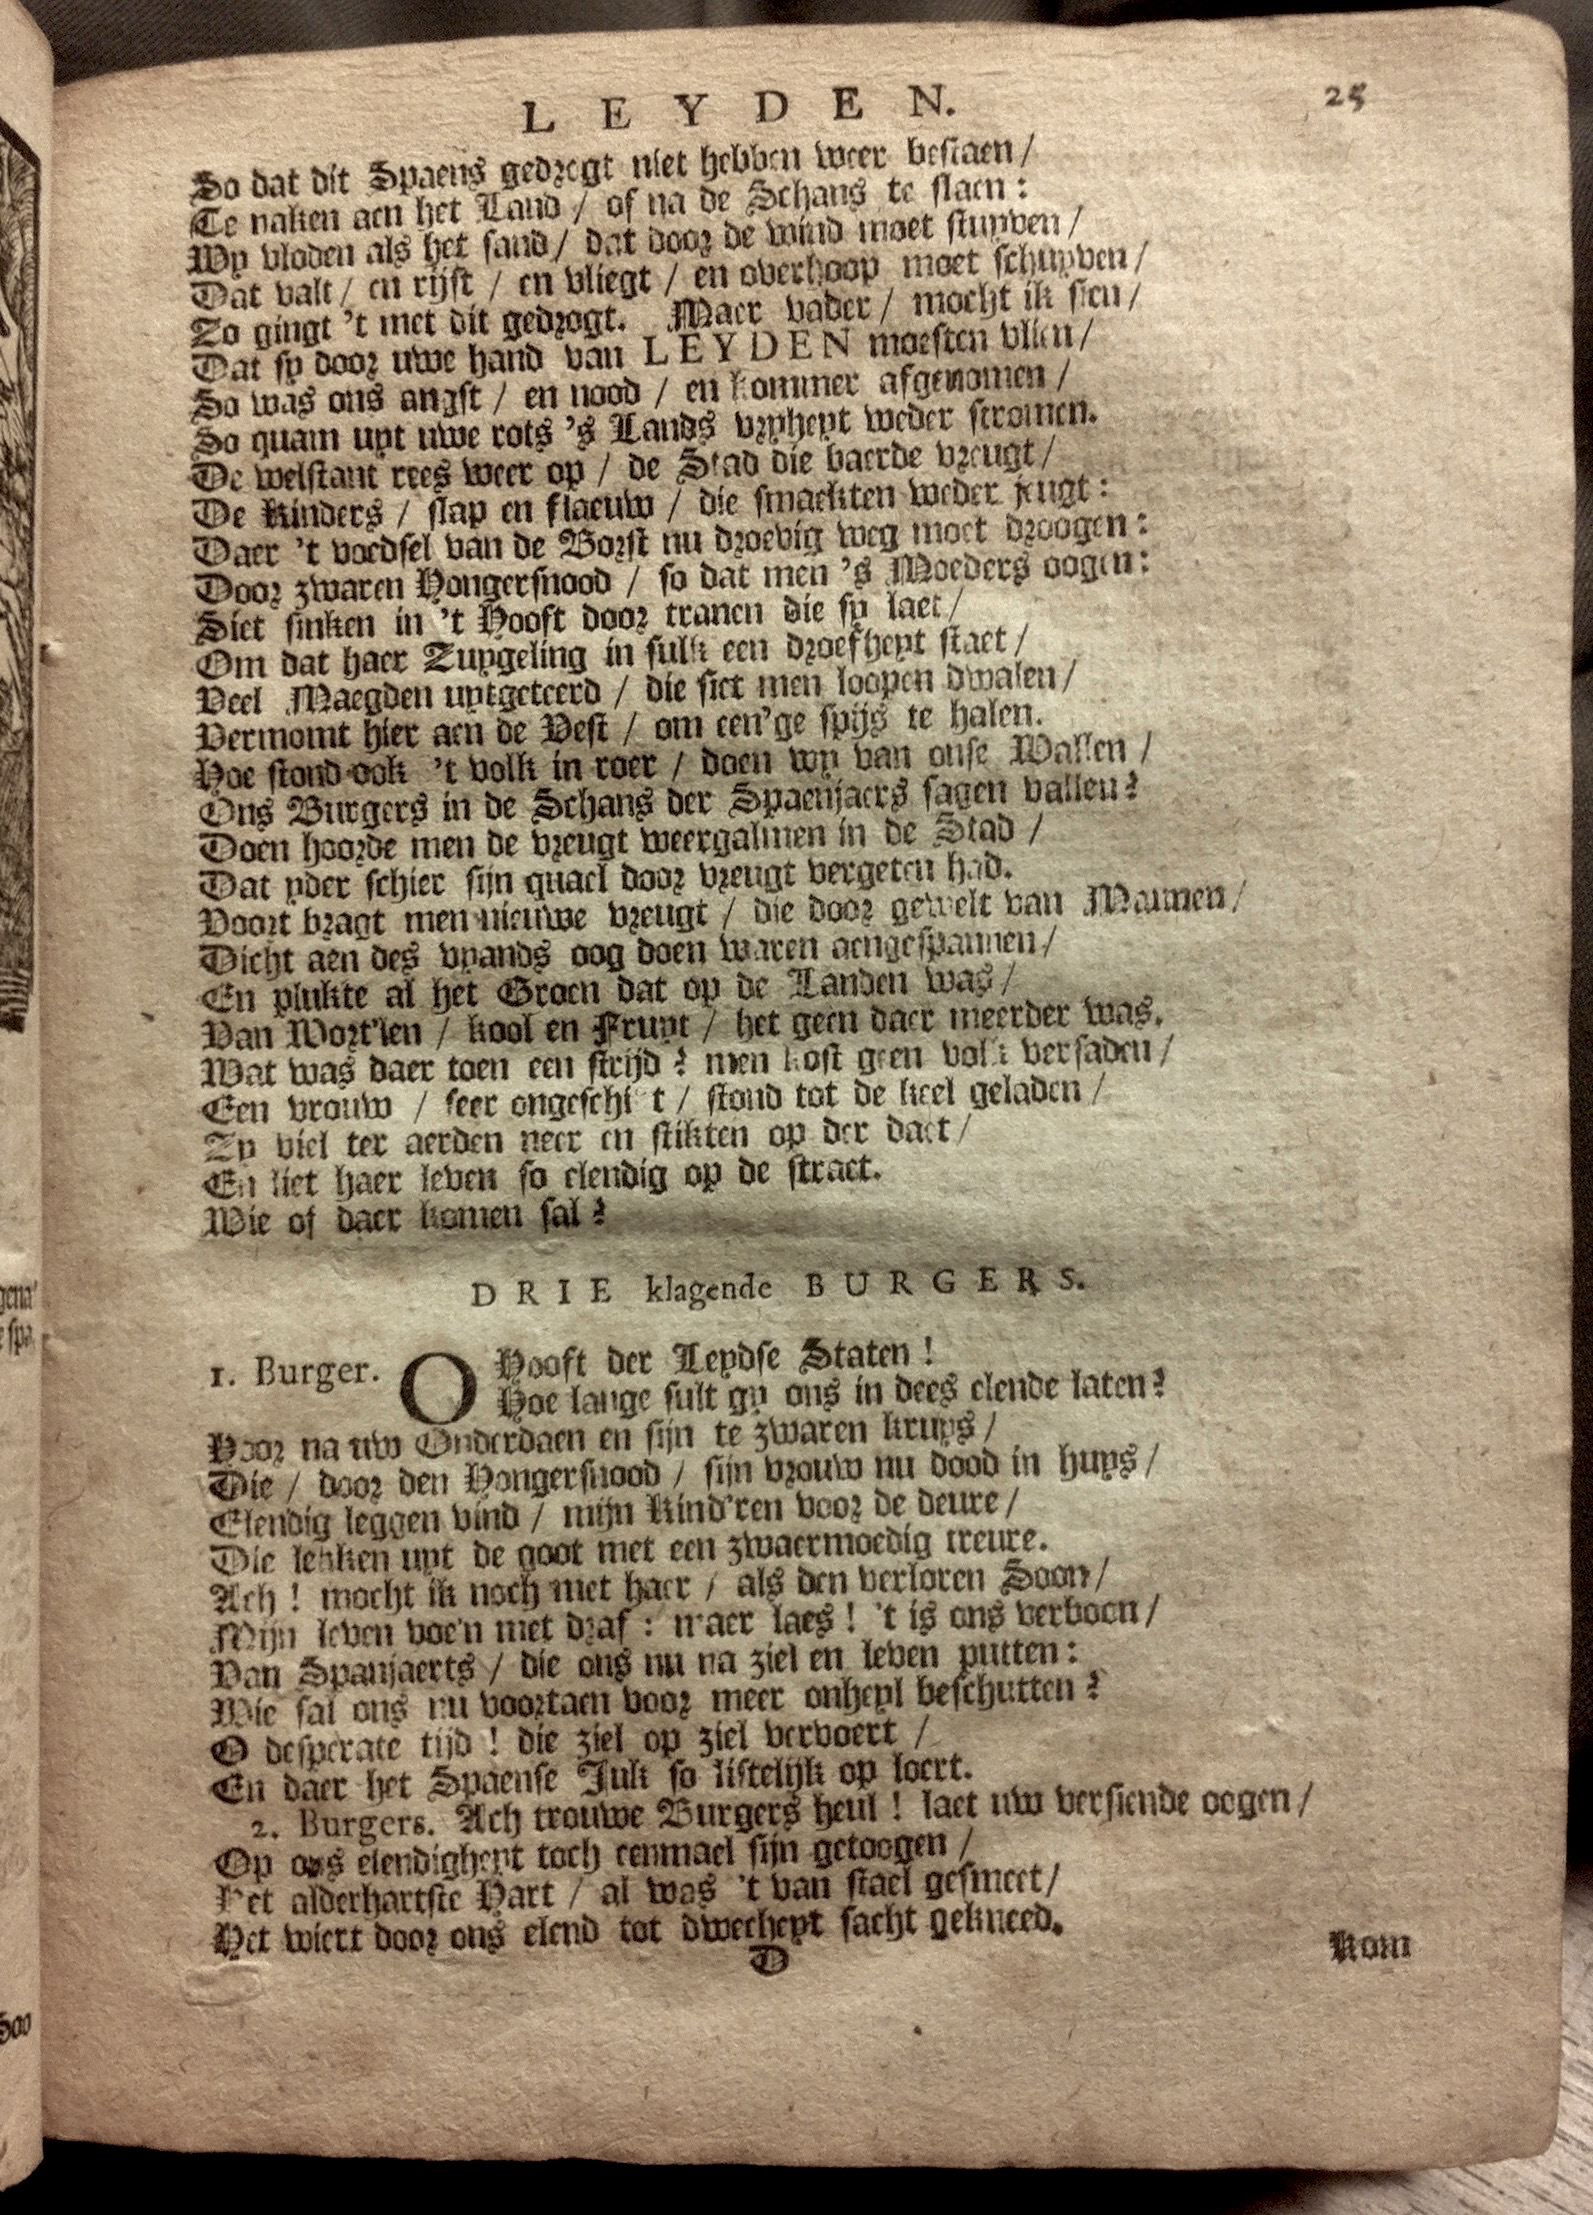 LEYDEN. 25
So dat dit Spaens gedrogt niet hebben weer bestaen /
Te naken aen het Land / of na de Schans te slaen :
Wy vloden als het sand / dat door de wind moet stuyven /
Dat valt / en rijst / en vliegt / en overhoop moet schuyven /
Zo gingt 't met dit gedrogt. Maer vader / mocht ik sien /
Dat sy door uwe hand van LEYDEN moesten vlien /
So was ons angst / en nood / en kommer afgenomen /
So quam uyt uwe rots 's Lands vryheyt weder stromen.
De welstant rees weer op / de Stad die baerde vreugt /
De Kinders / slap en flaeuw / die smaekten weder jeugt :
Daer 't voedsel van de Borst nu droevig weg moet droogen :
Door zwaren Hongersnood / so dat men 's Moeders oogen :
Siet sinken in 't Hooft door tranen die sy laet /
Om dat haer Zuygeling in sulk een droefheyt staet /
Veel Maegden uytgeteerd / die siet men loopen dwalen /
Vermomt hier aen de Vest / om een'ge spijs te halen.
Hoe stond ook 't volk in roer / doen wy van onse Wallen /
Ons Burgers in de Schans der Spaenjaers sagen vallen?
Doen hoorde men de vreugt weergalmen in de Stad /
Dat yder schier sijn quael door vreugt vergeten had.
Voort bragt men nieuwe vreugt / die door gewelt van Mannen /
Dicht aen des vyands oog doen waren aengespannen /
En plukte al het Groen dat op de Landen was /
Van Wort'len / kool en Fruyt / het geen daer meerder was.
Wat was daer toen een strijd? men kost geen volk versaden /
Een vrouw / seer ongeschikt / stond tot de keel geladen /
Zy viel ter aerden neer en stikten op der daet /
En liet haer leven so elendig op de straet.
Wie of daer komen sal?
DRIE klagende BURGERS.
1. Burger. O Hooft der Leydse Staten!
Hoe lange sult gy ons in dees elende laten?
Hoor na uw Onderdaen en sijn te zwaren kruys /
Die / door den Hongersnood / sijn vrouw nu dood in huys /
Elendig leggen vind / mijn Kind'ren voor de deure /
Die lekken uyt de goot met een zwaermoedig treure.
Ach! mocht ik noch met haer / als den verloren Soon /
Mijn leven voe'n met draf : maer laes! 't is ons verboon /
Van Spanjaerts / die ons nu na ziel en leven putten :
Wie sal ons nu voortaen voor meer onheyl beschutten?
O desperate tijd! die ziel op ziel vervoert /
En daer het Spaense Juk so listelijk op loert.
2. Burgers. Ach trouwe Burgers heul! laet uw versiende oogen /
Op ons elendigheyt toch eenmael sijn getoogen /
Het alderhartste Hart / al was 't van stael gesmeet /
Het wiert door ons elend tot dweeheyt sacht gekneed.
D Kom